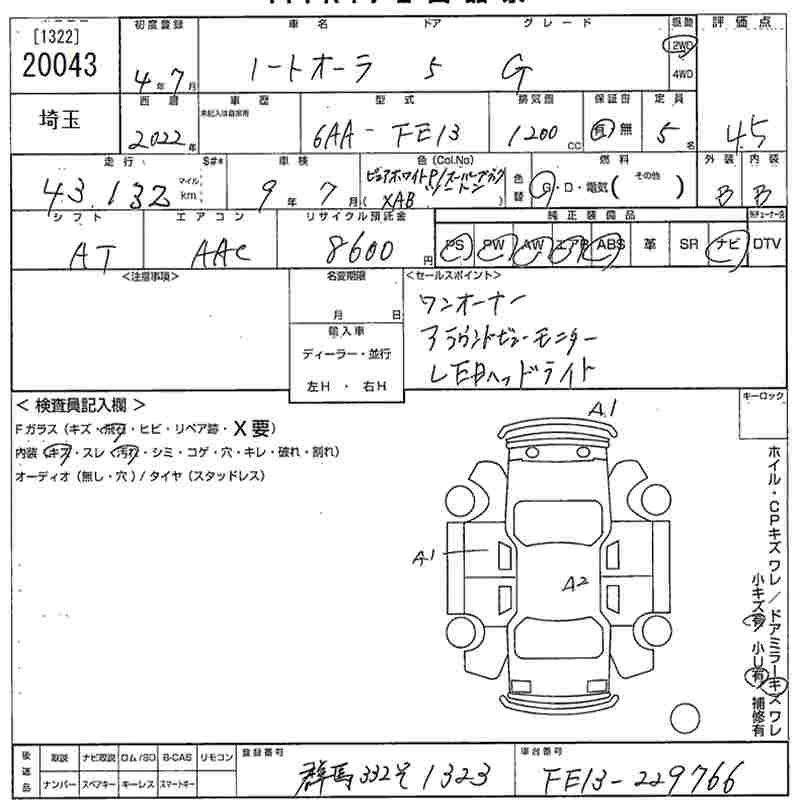 [1322]
20043
初度登録 車名 ドア グレード 駆動 評価点
4年 7月 ノートオーラ 5 G 2WD 4WD
4.5
埼玉
西暦 車歴 型式 排気量 保証書 定員
未記入は自家用
2022年 6AA-FE13 1200CC 有・無 5名
走行 S#* 車検 色(Col.No) 燃料 外装 内装
43,132 マイル km 9年 7月 ピュアホワイトP/スーパーブラックツートン (XAB) 色替 G・D・電気 (その他) B B
シフト エアコン リサイクル預託金 純正装備品
AT AAC 8600円 PS PW AW エアB ABS 革 SR ナビ DTV
<注意事項> 名変期限 <セールスポイント>
月 日 ワンオーナー
輸入車 アラウンドビューモニター
ディーラー・並行 LEDヘッドライト
左H・右H
<検査員記入欄> キーロック
Fガラス(キズ・飛石・ヒビ・リペア跡・X要)
内装(キズ・スレ・汚れ・シミ・コゲ・穴・キレ・破れ・割れ)
オーディオ(無し・穴)/タイヤ(スタッドレス)
A1
A1
A2
ホイル・CPキズワレ/ドアミラーキズワレ
小キズ有 小U有 補修有
後送品 取説 ナビ取説 ロム/SD B-CAS リモコン 登録番号 車台番号
ナンバー スペアキー キーレス スマートキー 群馬332そ1323 FE13-229766